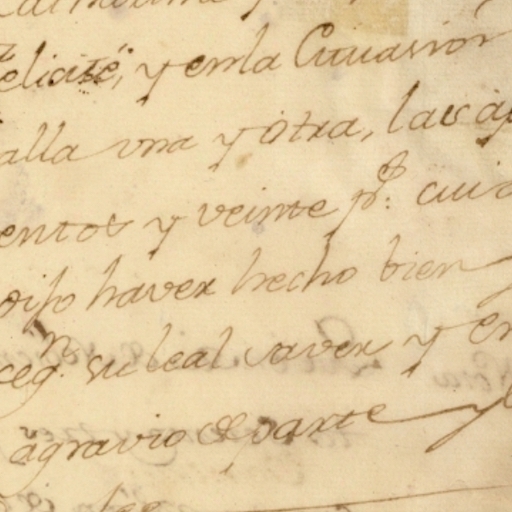 elicité, y en la Cituasion
alla una y otra, las ap
entos y veinte p.s cuia
dijo haver hecho bien
ceg.n su leal saver y en
agravio de parte y